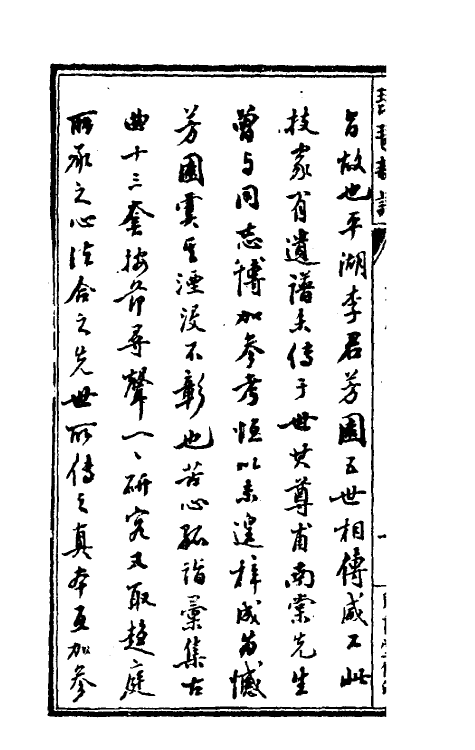 旨故也平湖李君芳園五世相傳咸工此
技家有遺譜未傳于世其尊甫南棠先生
曾与同志博加參考恒以未遑梓成為憾
芳園虞其湮没不彰也苦心孤詣彙集古
曲十三套按節尋聲一、研究又取趨庭
所承之心法合之先世所傳之真本互加參